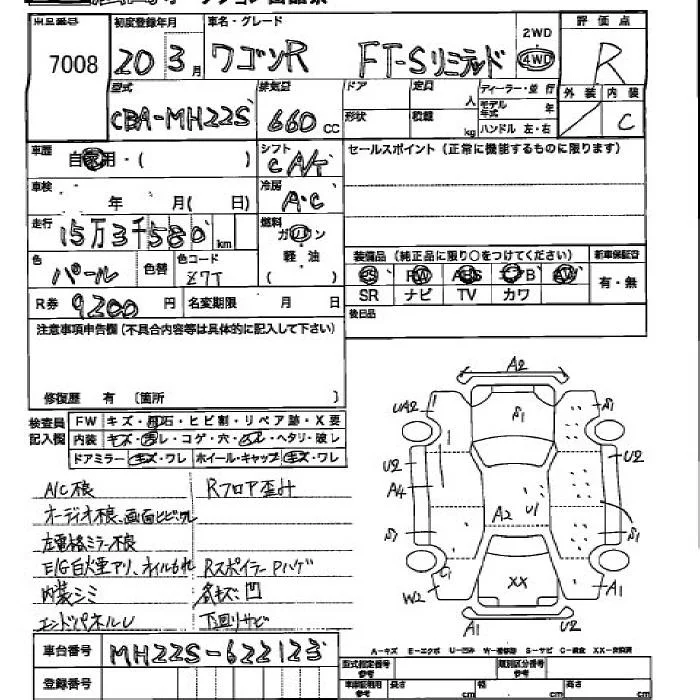 出品番号 初度登録年月 車名・グレード 2WD 評価点
7008 20 3月 ワゴンR FT-Sリミテッド 4WD R
型式 排気量 ドア 定員 人 ディーラー・並行 外装 内装
CBA-MH22S 660 CC 形状 積載 kg モデル年式 年 ハンドル 左・右 C
車歴 自家用・( ) シフト CA/t セールスポイント(正常に機能するものに限ります)
車検 年 月( 日) 冷房 A・C
走行 15万3千580 km 燃料 ガソリン
軽油
( )
色 パール 色替 色コード Z7T
装備品(純正品に限り○をつけてください) 新車保証書
SR ナビ TV カワ 有・無
R券 9200円 名変期限 月 日
後日品
注意事項申告欄(不具合内容等は具体的に記入して下さい)
修復歴 有 〔箇所 〕
検査員記入欄 FW キズ・飛石・ヒビ割・リペア跡・X要
内装 キズ・汚レ・コゲ・穴・スレ・ヘタリ・破レ
ドアミラー キズ・ワレ ホイール・キャップ キズ・ワレ
A/C不良 Rフロア歪み
オーディオ不良、画面ヒビワレ
左電格ミラー不良
E/G白煙アリ、オイルもれ Rスポイラー Pハゲ
内装シミ 各キズ凹
エンドパネルU 下回りサビ
A2
UA2 S1 S1
U2 U2
A4
A2 U1
S1 S1
C1
XX
W2 A1
A1 U2
A-キズ E-エクボ U-凹み W-補修跡 S-サビ C-腐食 XX-交換済
車台番号 MH22S-622123
登録番号
型式指定番号 参考 類別区分番号 参考
車庫証明用 参考 長さ cm 幅 cm 高さ cm